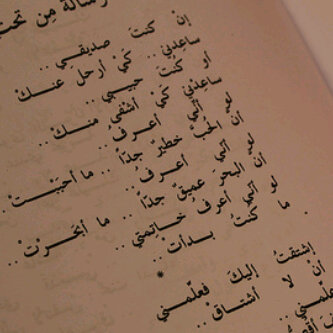 رسالة من تحت
إنْ كنتَ صديقي ..
ساعِدْني .. كَيْ أرحلَ عنكْ
أو كُنتَ حبيبي ..
ساعِدْني كَيْ أُشْفَى منكْ ..
لو أنّي أعرفُ ..
أنّ الحُبَّ خطيرٌ جدّاً .. ما أحبَبْتْ ..
لو أنّي أعرفُ ..
أنّ البحرَ عميقٌ جدّاً .. ما أبحَرْتْ ..
لو أنّي أعرفُ خاتمتي ..
ما كنتُ بدأتْ ..
*
إشتقتُ إليكَ فعلّمني
أنْ لا أشتاقْ ..
علّمني